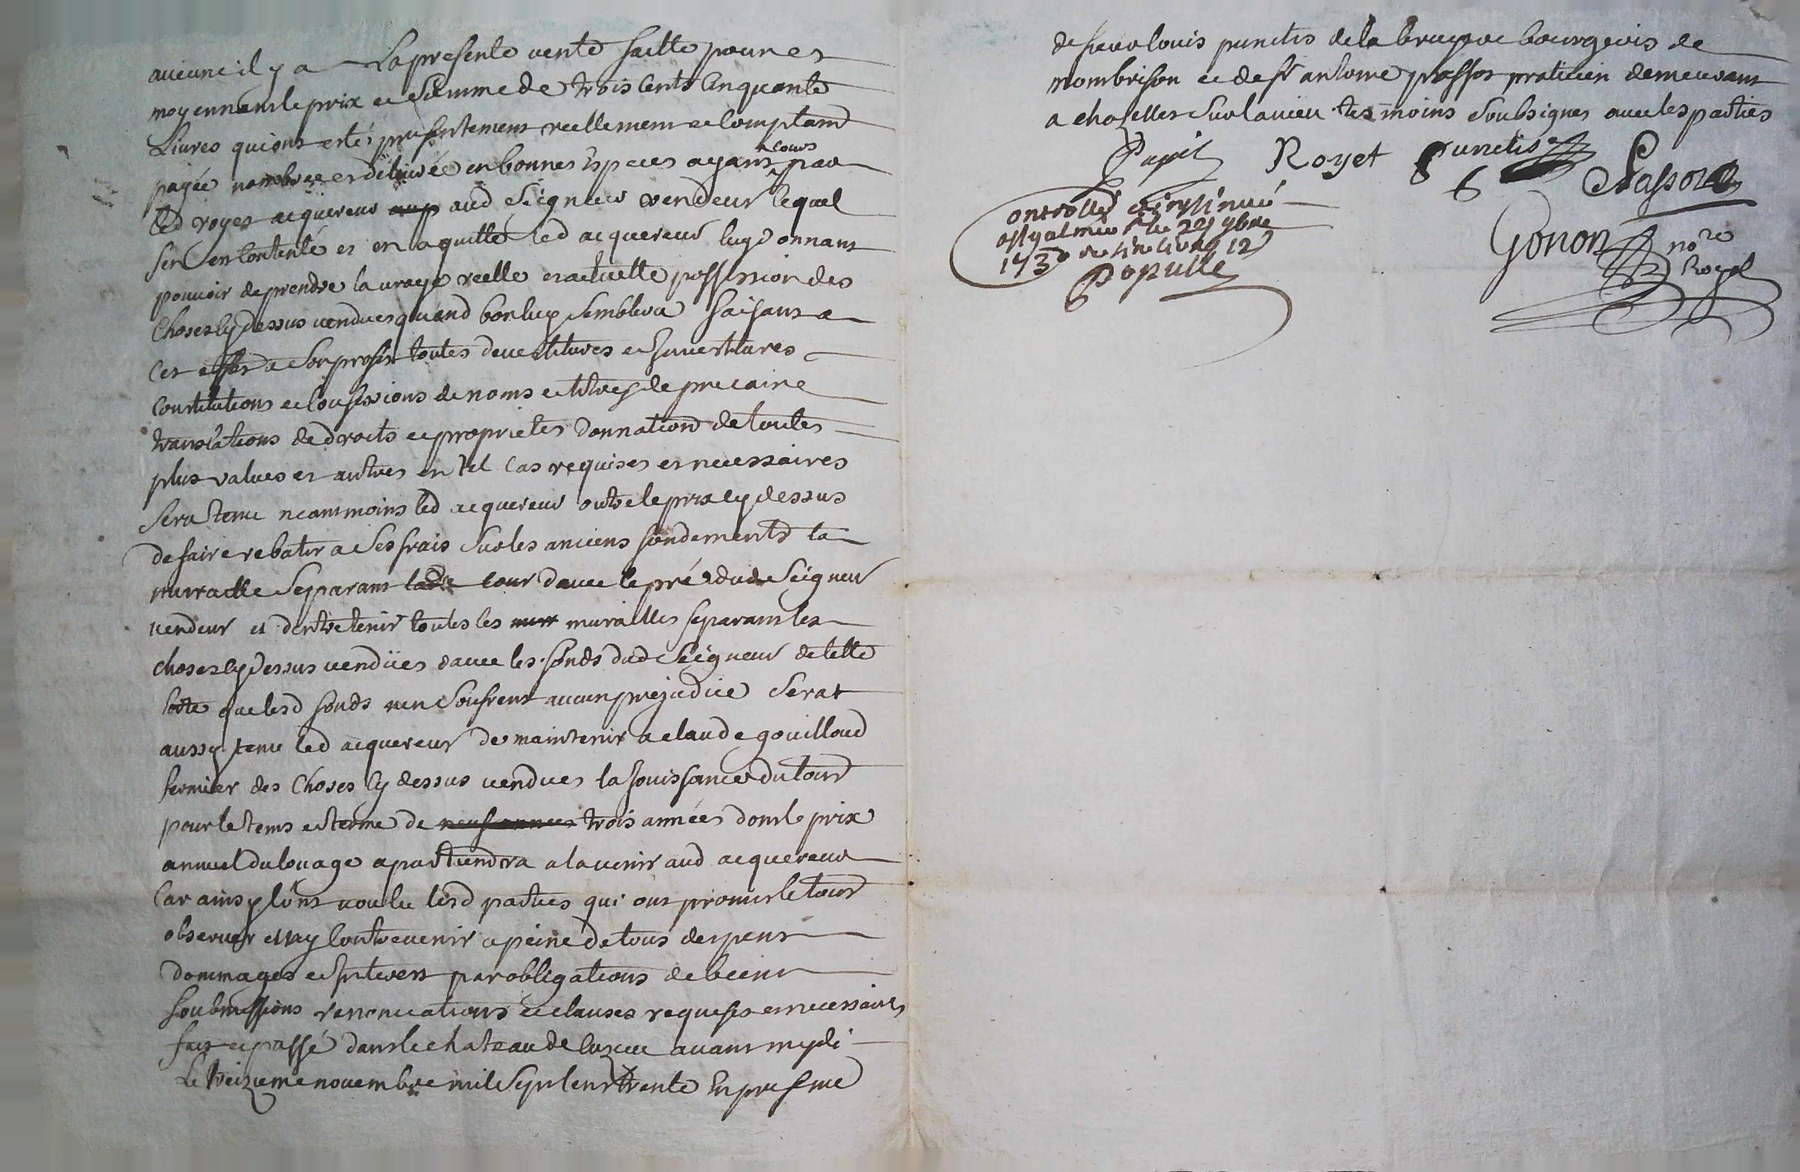 aucune il y a La presente vente faitte pour et
moyennant le prix et somme de trois cents cinquante
Livres qui ont esté presentement reellement et comptant
payée nombrée et délivrée en bonnes especes ayant cours par
led royet acquereur aud seigneur vendeur lequel
sen contente et en a quitté led acquereur luy donnant
pouvoir de prendre la vraye reelle et actuelle possession des
choses cy dessus vendues quand bon luy semblera faisant a
cet effet a son profit toutes devestitures et investitures
constitutions et confessions de noms et titres de precaire
translations de droits et proprietés donnation de toutes
plus values et autres en tel cas requises et necessaires
sera tenu neammoins led acquereur outre le prix cy dessus
de faire rebatir a ses frais sur les anciens fondements la
muraille separant lad cour davec le pré dud Seigneur
vendeur et dentretenir toutes les mur murailles separant les
choses cy dessus vendües davec les fonds dud Seigneur de telle
sorte que lesd fonds nen soufrent aucun prejudice Serat
aussy tenu led acquereur de maintenir a claude gouilloud
fermier des choses cy dessus vendues la jouissance du tout
pour le tems et terme de neuf années trois années dont le prix
annuel du louage apartiendra a lavenir aud acquereur
Car ainsy lont voulu lesd parties qui ont promis le tout
observer et ny contrevenir a peine de tous despens
dommages et interest par obligations de biens
soubmissions renonciations et clauses requises et necessaires
fait et passé dans le chateau de avant mydi
Le treizieme novembre mil sept cent trente En presence
de sieur louis punctis de la bruyere bourgeois de
montbrison et de sr antoine passot praticien demeurant
a chazelles sur lavieu tesmoins soubsignes avec les parties
Papit Royet Punctis
Passot
Controllé et insinué
a St galmier le 22e 9bre
1730 12
Populle
Gonon nore
Royal